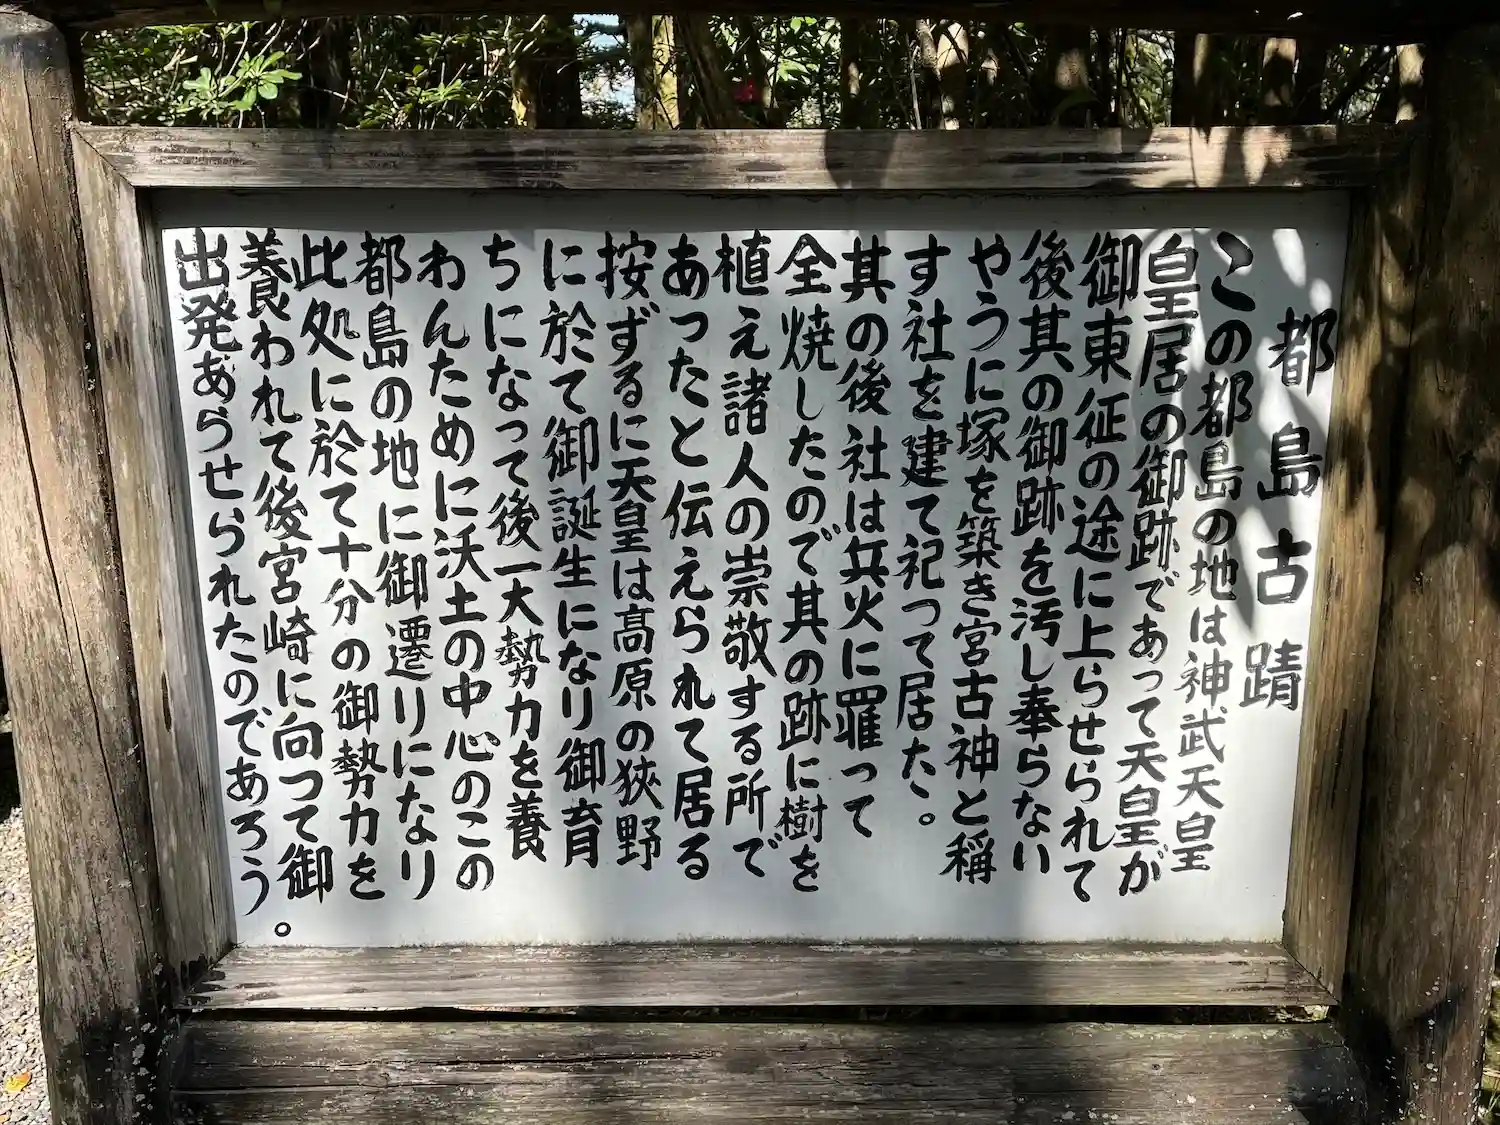 都島古蹟
この都島の地は神武天皇
皇居の御跡であって天皇が
御東征の途に上らせられて
後其の御跡を汚し奉らない
やうに塚を築き宮古神と稱
す社を建て祀って居た。
其の後社は兵火に罹って
全焼したので其の跡に樹を
植え諸人の崇敬する所で
あったと伝えられて居る
按ずるに天皇は髙原の狹野
に於て御誕生になり御育
ちになって後一大勢力を養
わんために沃土の中心のこの
都島の地に御遷りになり
此処に於て十分の御勢力を
養われて後宮崎に向つて御
出発あらせられたのであろう。